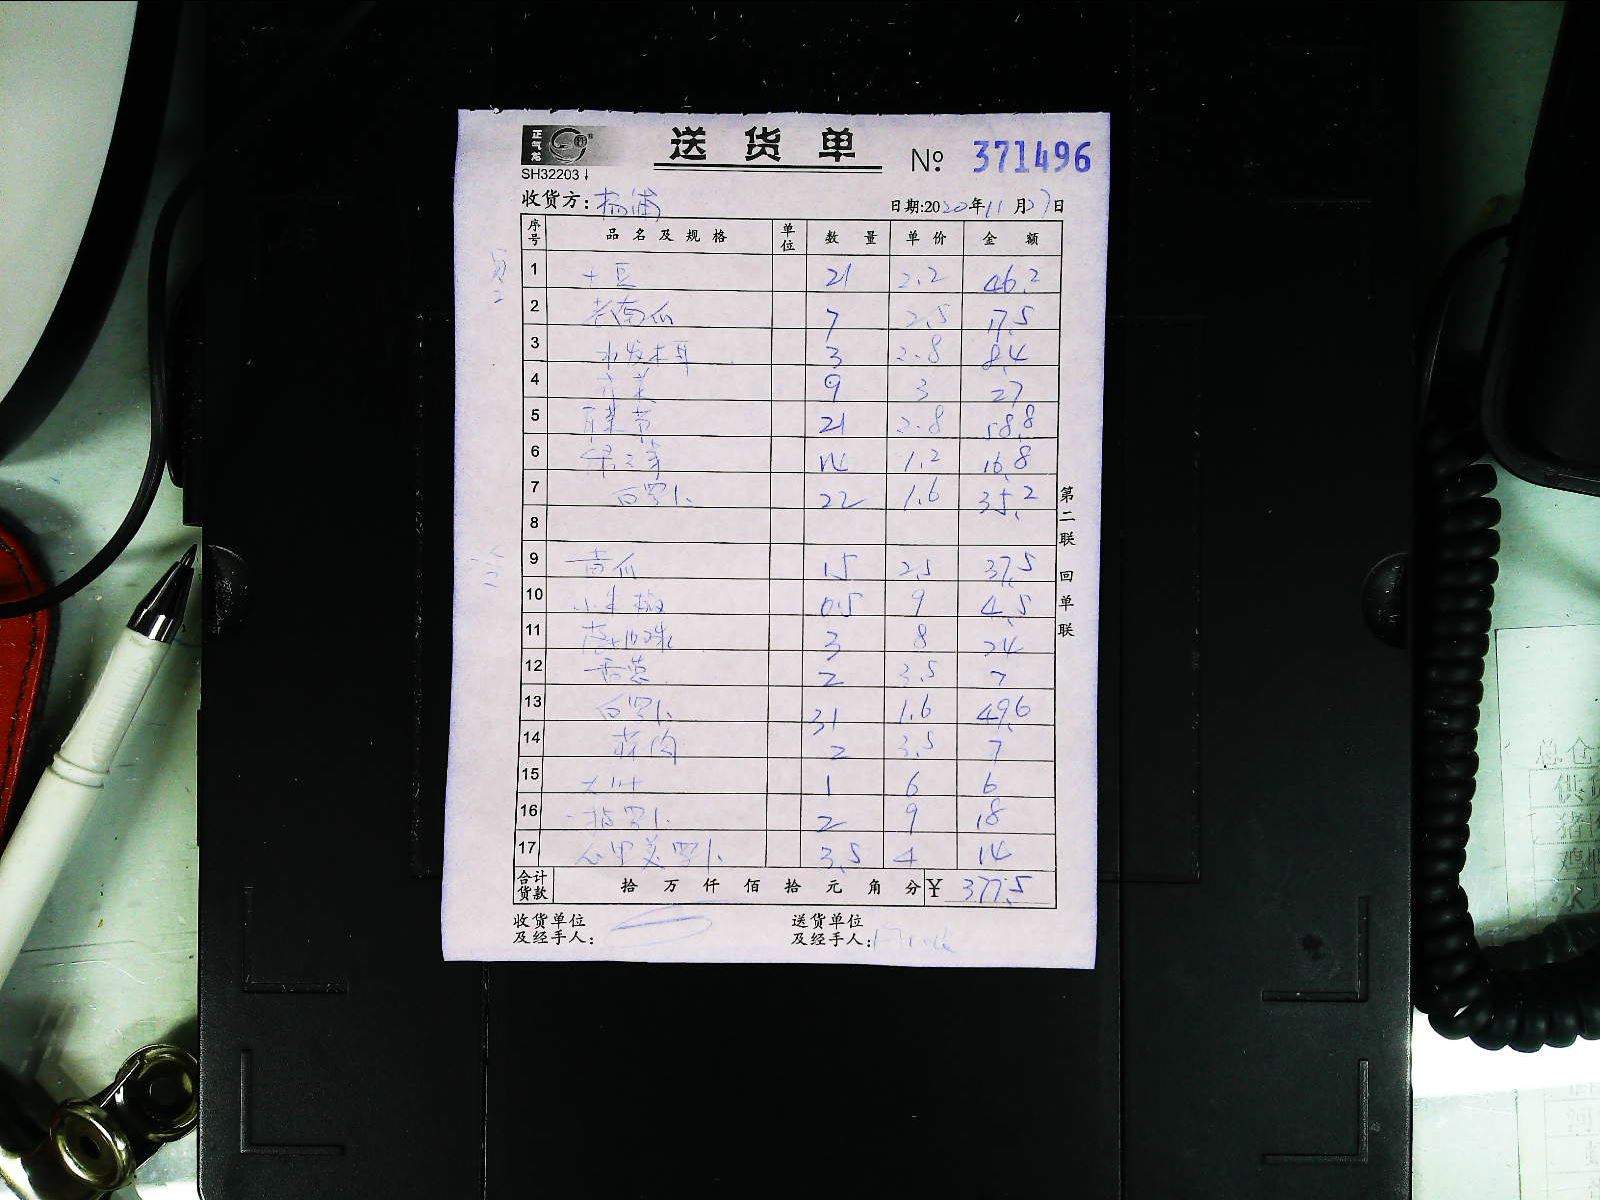 正气龙
送货单
№ 371496
SH32203↓
收货方：杨浦
日期:2020年11月27日
序号 品名及规格 单位 数量 单价 金额
1 土豆 21 2.2 46.2
2 老南瓜 7 2.5 17.5
3 水发木耳 3 2.8 8.4
4 芹菜 9 3 27
5 21 2.8 58.8
6 绿豆芽 14 1.2 16.8
7 白罗卜 22 1.6 35.2
8
9 黄瓜 15 2.5 37.5
10 小米椒 0.5 9 4.5
11 3 8 24
12 香葱 2 3.5 7
13 白罗卜 31 1.6 49.6
14 蒜肉 2 3.5 7
15 大叶 1 6 6
16 一指罗卜 2 9 18
17 心里美罗卜 3.5 4 14
合计货款 拾万仟佰拾元角分 ¥ 377.5
收货单位及经手人：
送货单位及经手人：
第二联 回单联
总仓